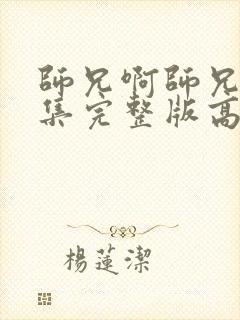 師兄啊師兄
集完整版高
楊蓮潔